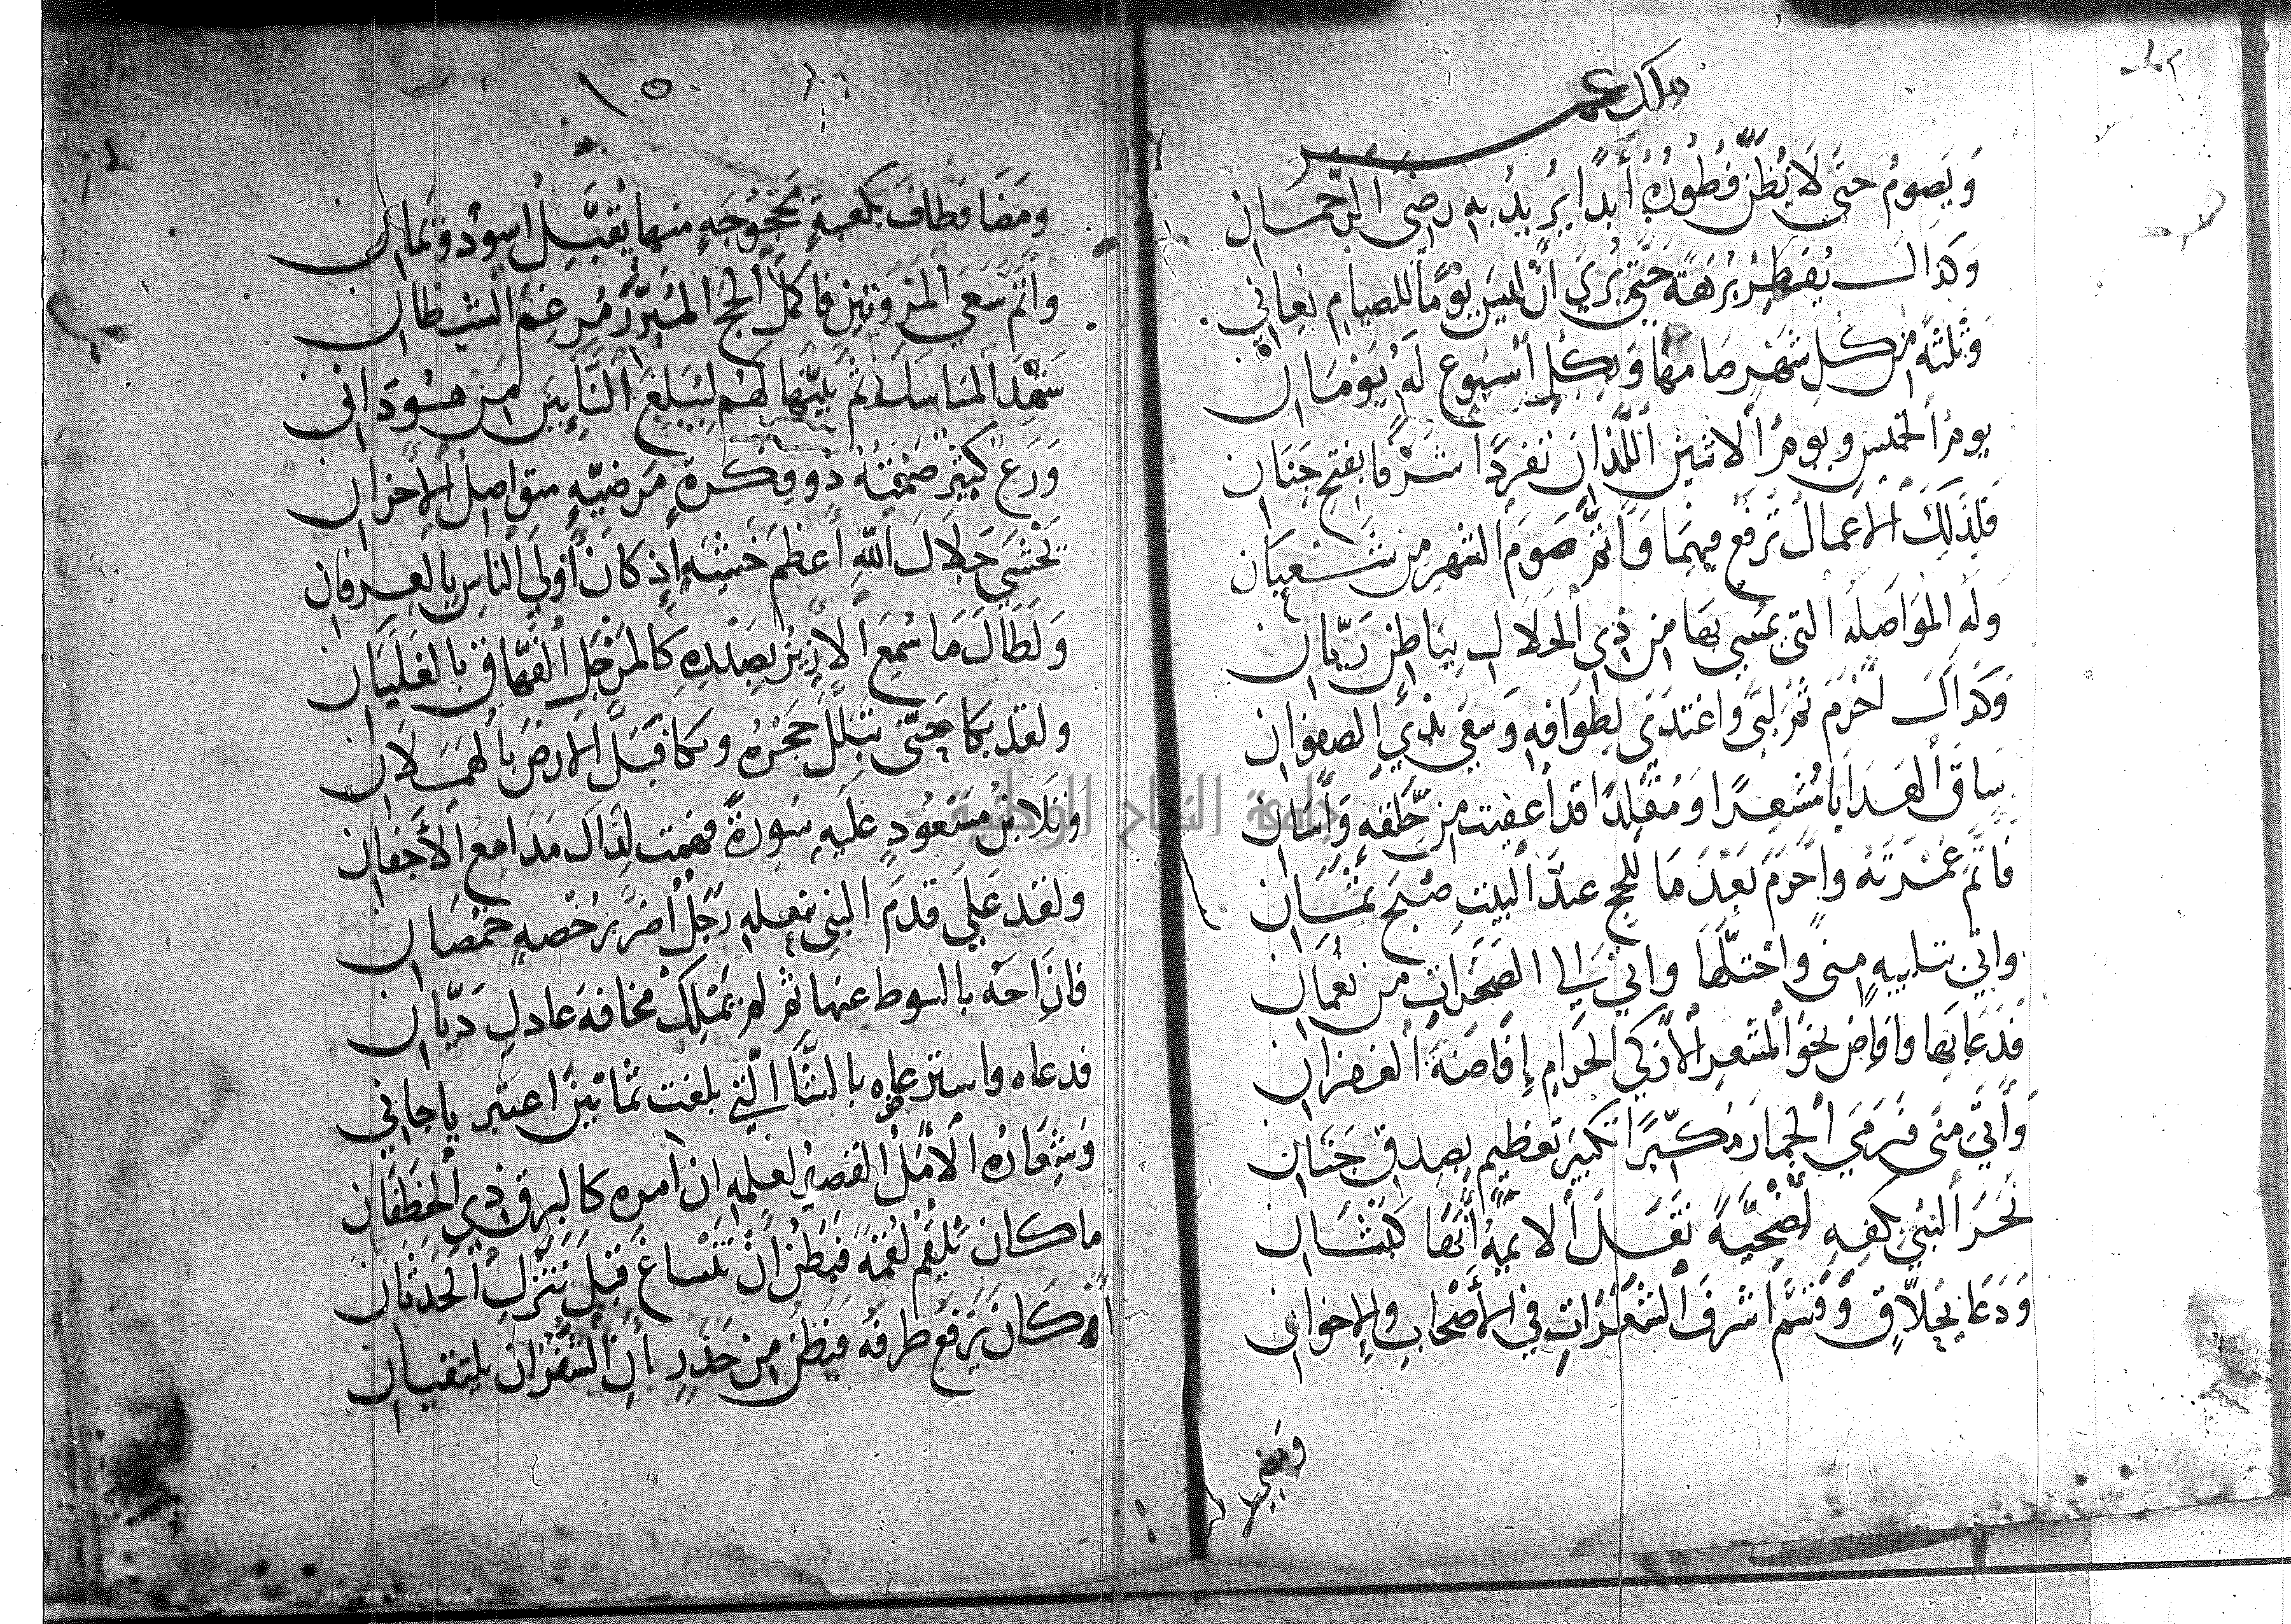 ملك عمر
وَيَصومُ حتى لَا يُظَنّ فُطُورُه أَبَدًا يُرِيدُ به رضى الرحمان
وَكذاك يُفطِرُ بُرهَةً حَتَّى يُرَي أن ليسَ يَوْمًا للصيام يُعاني
وَثلثة من كل شَهْرٍ صامها وَبِكلِ أُسْبُوع لَه يَوْمَان
يومُ الخميس ويومُ الاثنين اللّذان تفردَا شرفًا بفتح جِنَان
فَلِذلِكَ الاعمالُ تُرفَع فيهِمَا وَأتمّ صَومَ الشهر من شَعْبَان
ولَه المُوَاصَلة التي يمسي بها من ذي الجلال بِبَاطِنٍ رَيّان
وَكذاكَ أحْرَمَ ثمّ لبّى واغتدَى لِطَوافِه وَسعَى بذي الصفوان
سَاقَ الهَدَايا مُشعِرًا وَمُقلِدًا قد أعفيت من حَلقه
فَاتَمَّ عُمْرَتَه وأحْرَمَ بَعْدَ مَا للحج عندَ البيتِ صُبحَ ثمَانِ
وأتى بتلبيةٍ منىً واحْتَلّها وأتى إلى الصَخَراتِ من نعْمَان
فدَعَا بها وأفاض نحْوَ المَشعرِ الأزكي الحَرَامِ إفَاضَةَ الغفران
وَأتى منى فرَمَى الجمارَ مُكبّرًا تكبيرَ تعظيمٍ بصِدقِ جَنَان
نَحَرَ النبيُ بكفِهِ أضحِيَّةً نَقَلَ الايمةُ أنّهَا كبْشَان
وَدَعَا بحَلاّقٍ وَقَسَّمَ أشرفَ الشَعَرَاتِ في الأصْحَابِ والإخوان
ومضى
١٥
ومَضَا فطاف بكعبةٍ مَحْجُوجَةٍ منها يُقبَّل أسودٌ ويَمان
وأتمَّ سَعي المَرْوتين فاكمل الحجَ المُبرَّرَ مُرغِمَ الشيطان
شَهِدَ المَنَاسِكَ ثمّ بيّنها لهُم ليُبَلِغَ النَّائِينَ من هُوَ دَانى
وَرَع كثيرٌ صَمْتُهُ ذو فِكْرةٍ مَرضيّهٍ متواصِل الاحزان
يَخشَي جَلالَ اللهِ أعظمَ خَشيَةٍ إذ كان أولي الناسِ بالعِرفان
وَلَطَالَ مَا سُمِعَ الأزِيزُ بِصَدْرِهِ كالمِرْجَلِ الفَهَّاقِ بالغَلَيَان
ولقد بكا حَتّى تبَلّلَ حَجْرُهُ وبكا فَبَلّ الأرضَ بالهَمَلَان
وتلا ابنُ مسْعُودٍ عليهِ سُورةً فهَمَت لِذاكَ مَدَامعُ الأجفان
ولقد عَلي قدَمَ النبي بنعله رَجُلٌ أضرَّ برُخْصهٍ خَمْصَان
فأزاحَهُ بالسوط عنها ثم لم يَمْلِك مخافة عادلٍ دَيّان
فدعاه واسترعاه بالشَّاء التي بلغت ثمانين اعتبر ياجاني
وَشِعَارُهُ الأمَلُ القصيرُ لعلمهِ ان أمره كالبرق ذي الخطفان
ما كان يُلقَم لُقمةً فيَظن أنْ تنْسَاغ قبلَ تنَزُلِ الحَدَثان
أو كان يَرْفَع طرفه فيَظن من حَذَرٍ بأن الشفران يلتقيان